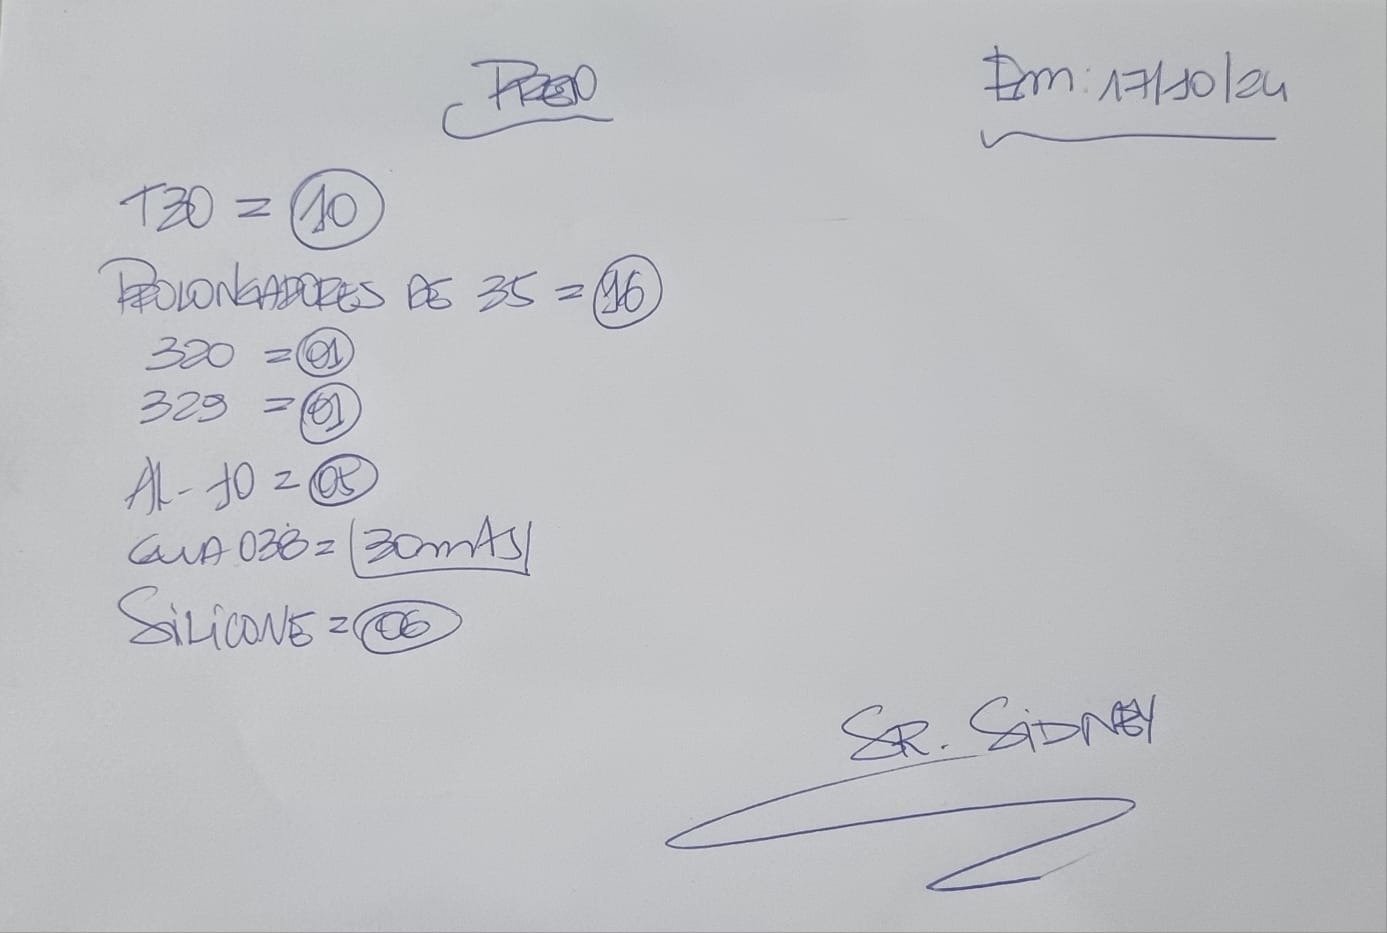 Em: 17/10/24
T30 = 10
PROLONGADORES DE 35 = 16
320 = 01
329 = 01
AL-10 = 05
GUIA 038 = 30mts
SiLiCONE = 06
SR. SiDNEY